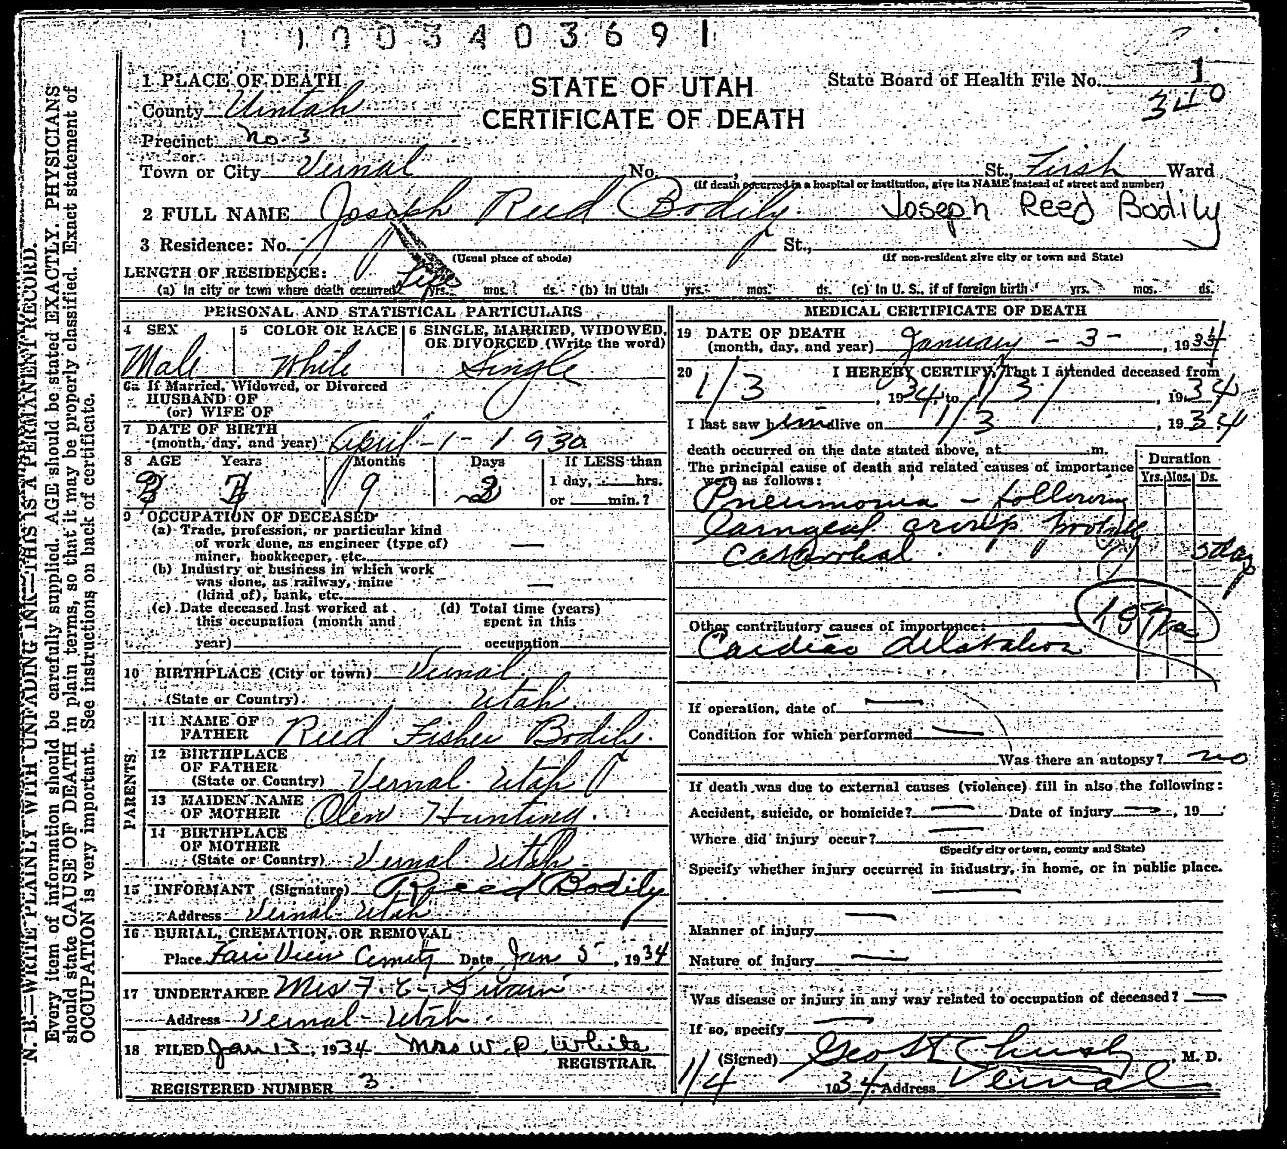 1003403691
1 PLACE OF DEATH
STATE OF UTAH
CERTIFICATE OF DEATH
State Board of Health File No. 1
340
County Uintah
Precinct No. 3
or
Town or City Vernal No. , St., First Ward
(If death occurred in a hospital or institution, give its NAME instead of street and number)
2 FULL NAME Joseph Reed Bodily. Joseph Reed Bodily
3 Residence: No. St.,
(Usual place of abode) (If non-resident give city or town and State)
LENGTH OF RESIDENCE:
(a) In city or town where death occurred Life yrs. mos. ds. (b) In Utah yrs. mos. ds. (c) In U. S., if of foreign birth yrs. mos. ds.
PERSONAL AND STATISTICAL PARTICULARS
4 SEX 5 COLOR OR RACE 6 SINGLE, MARRIED, WIDOWED, OR DIVORCED (Write the word)
Male White Single
6a If Married, Widowed, or Divorced
HUSBAND OF
(or) WIFE OF
7 DATE OF BIRTH
(month, day, and year) April - 1 - 1930
8 AGE Years Months Days If LESS than
3 9 2 1 day, hrs.
or min.?
9 OCCUPATION OF DECEASED
(a) Trade, profession, or particular kind
of work done, as engineer (type of)
miner, bookkeeper, etc. —
(b) Industry or business in which work
was done, as railway, mine
(kind of), bank, etc. —
(c) Date deceased last worked at (d) Total time (years)
this occupation (month and spent in this
year) occupation
10 BIRTHPLACE (City or town) Vernal
(State or Country) Utah.
PARENTS
11 NAME OF
FATHER Reed Fisher Bodily.
12 BIRTHPLACE
OF FATHER
(State or Country) Vernal Utah
13 MAIDEN NAME
OF MOTHER Olen Hunting.
14 BIRTHPLACE
OF MOTHER
(State or Country) Vernal Utah
15 INFORMANT (Signature) Reed Bodily
Address Vernal Utah
16 BURIAL, CREMATION, OR REMOVAL
Place Fair View Cemetz Date Jan 5, 1934
17 UNDERTAKER Mrs F. C. Swain
Address Vernal - Utah.
18 FILED Jan 13, 1934 Mrs W. P. White
REGISTRAR.
REGISTERED NUMBER 3
MEDICAL CERTIFICATE OF DEATH
19 DATE OF DEATH
(month, day, and year) January - 3 - , 1934
20 I HEREBY CERTIFY, That I attended deceased from
1/3, 1934, to 1/3, 1934
I last saw him alive on 1/3, 1934
death occurred on the date stated above, at m.
The principal cause of death and related causes of importance
were as follows:
Duration
Yrs. Mos. Ds.
Pneumonia - following
Laryngeal croup probly
Catarrhal. 5 day
Other contributory causes of importance:
Cardiac dilatation
If operation, date of —
Condition for which performed —
Was there an autopsy? no
If death was due to external causes (violence) fill in also the following:
Accident, suicide, or homicide? — Date of injury —, 19
Where did injury occur? —
(Specify city or town, county and State)
Specify whether injury occurred in industry, in home, or in public place.
—
Manner of injury —
Nature of injury —
Was disease or injury in any way related to occupation of deceased? —
If so, specify —
(Signed) M. D.
1/4 1934 Address Vernal
N. B.—WRITE PLAINLY WITH UNFADING INK—THIS IS A PERMANENT RECORD.
Every item of information should be carefully supplied. AGE should be stated EXACTLY. PHYSICIANS
should state CAUSE OF DEATH in plain terms, so that it may be properly classified. Exact statement of
OCCUPATION is very important. See instructions on back of certificate.